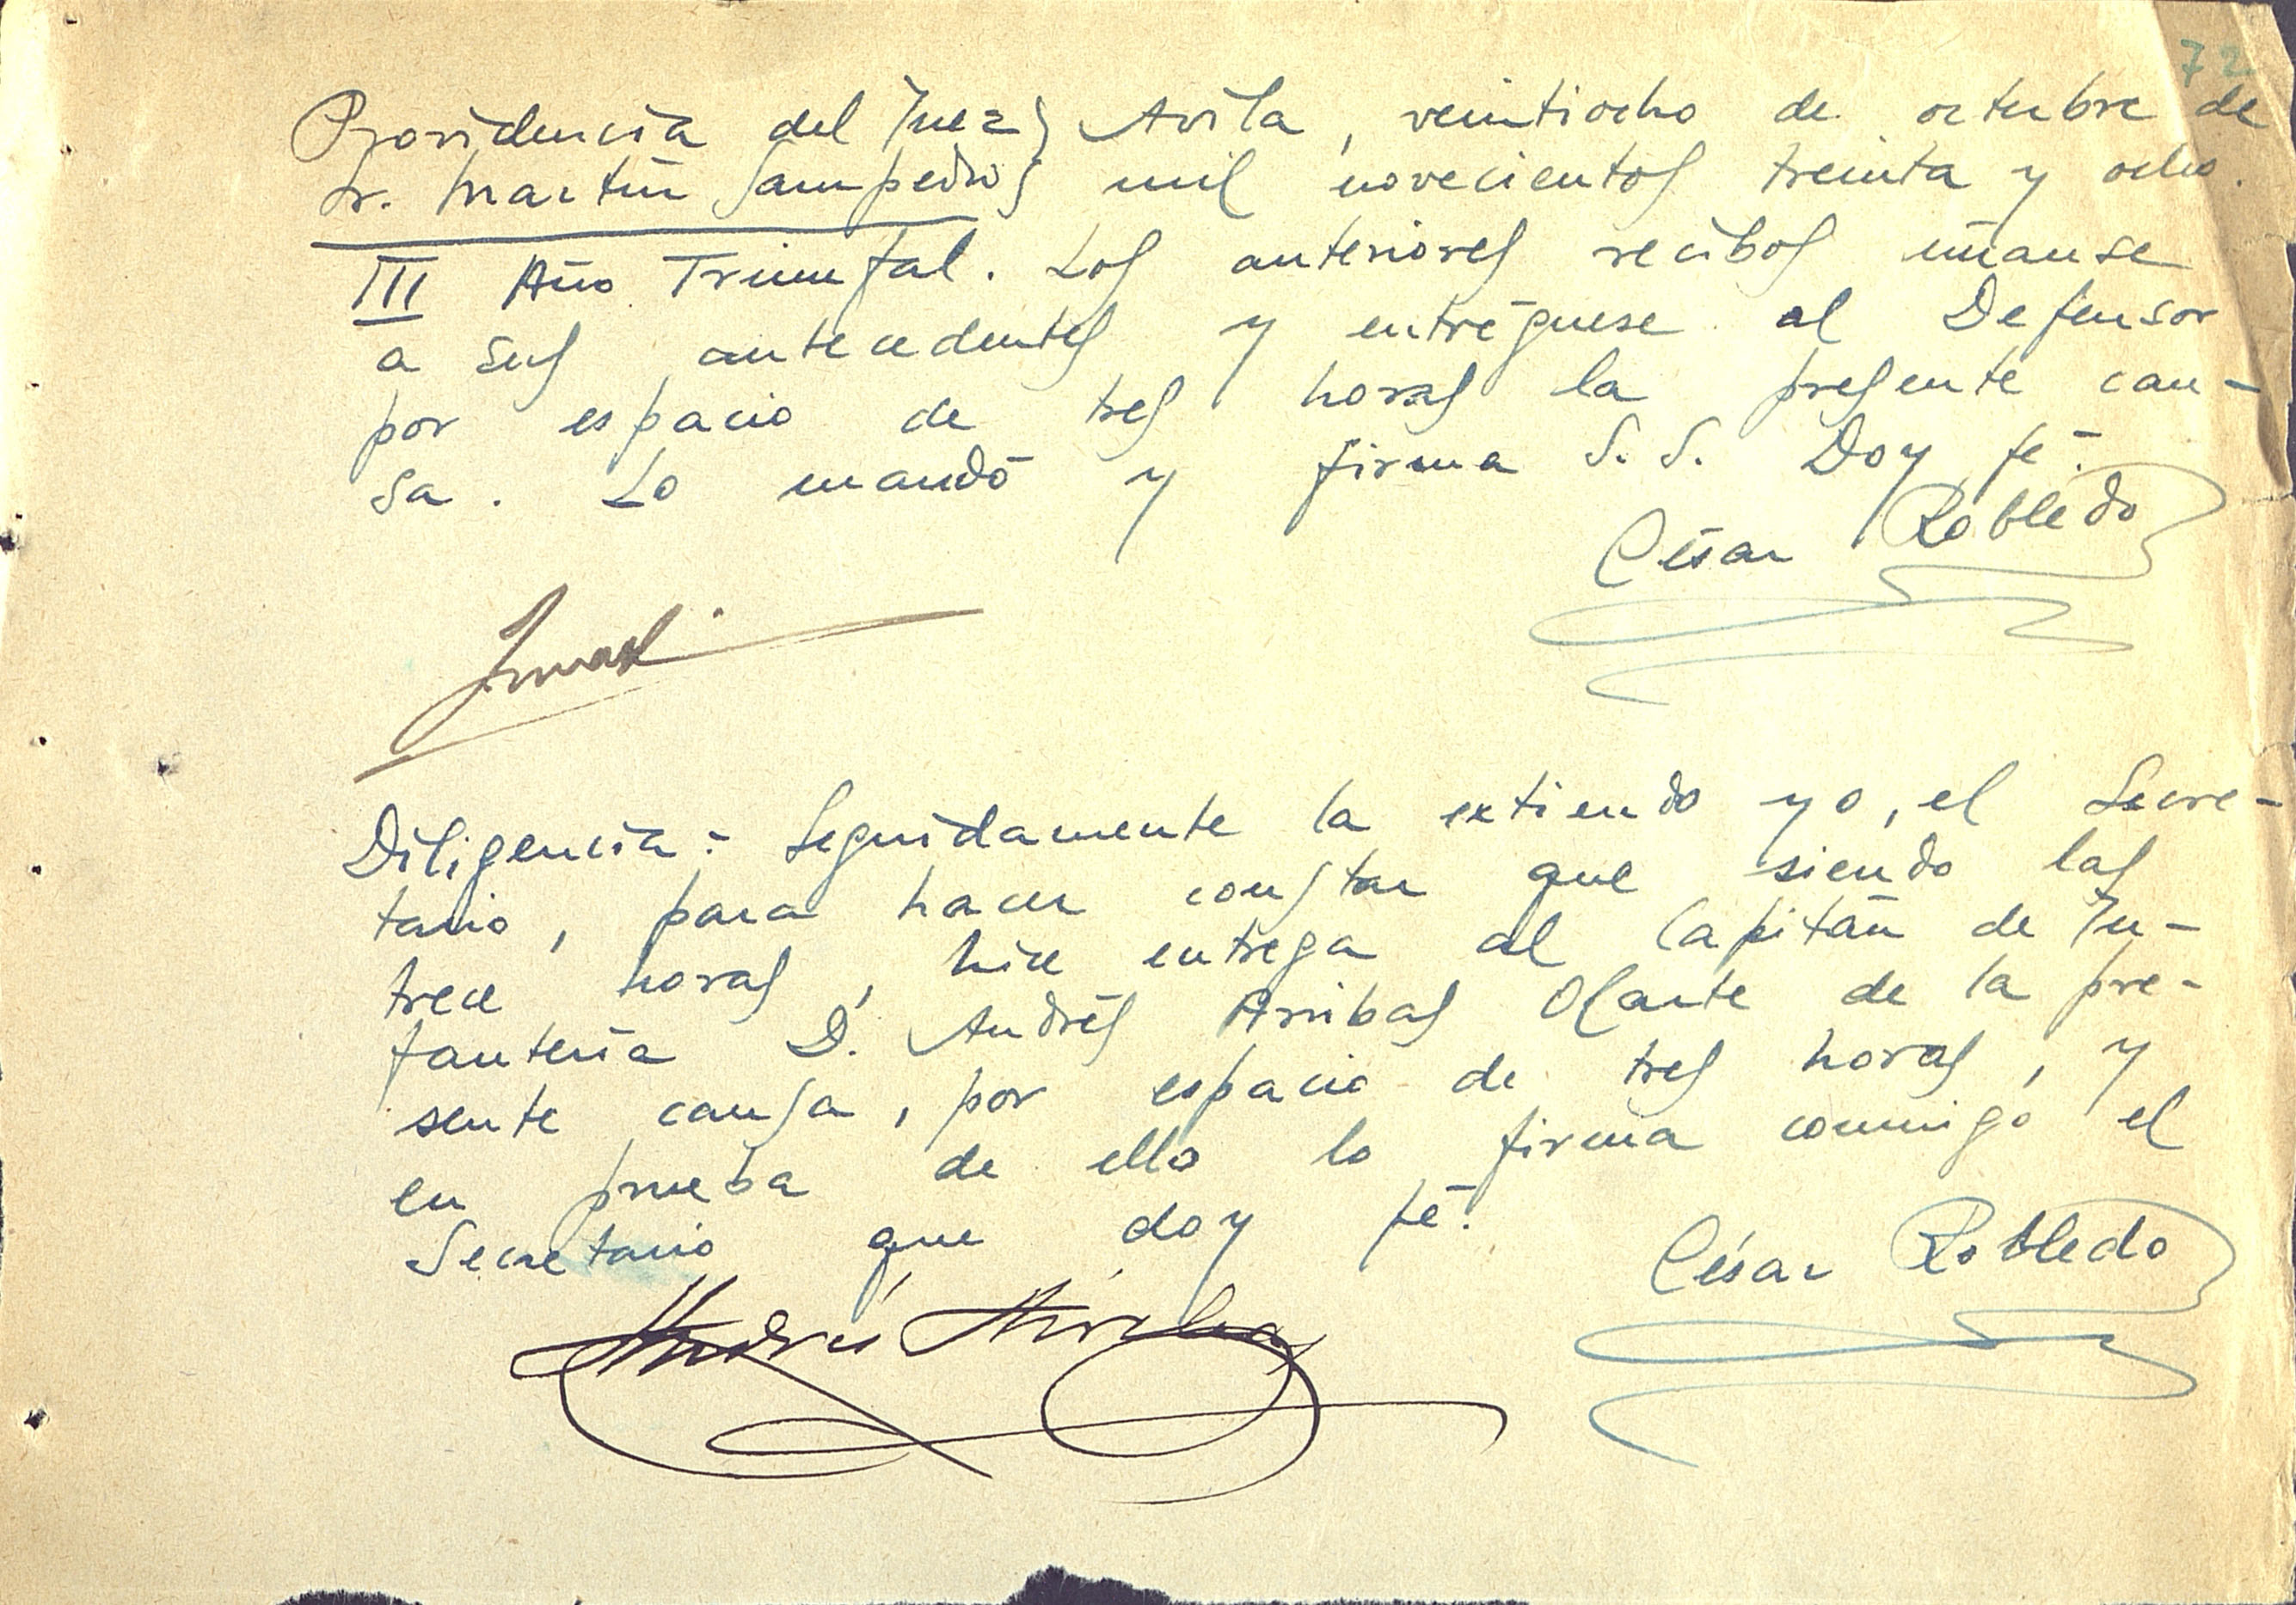 72
Providencia del Juez } Avila, veintiocho de octubre de
Sr. Martín Sampedro } mil novecientos treinta y ocho.
III Año Triunfal. Los anteriores recibos únanse
a sus antecedentes y entréguese al Defensor
por espacio de tres horas la presente cau-
sa. Lo mandó y firma S. S. Doy fé.
César Robledo
Diligencia: Seguidamente la extiendo yo, el Secre-
tario, para hacer constar que siendo las
trece horas, hice entrega al Capitán de In-
fantería D. Andrés Arribas Olarte de la pre-
sente causa, por espacio de tres horas, y
en prueba de ello lo firma conmigo el
Secretario que doy fé.
César Robledo
Andrés Arribas